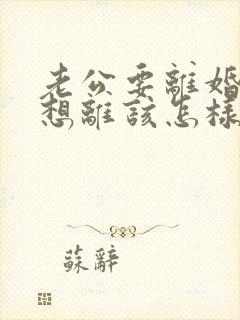 老公要離婚
想離該怎樣
蘇辭